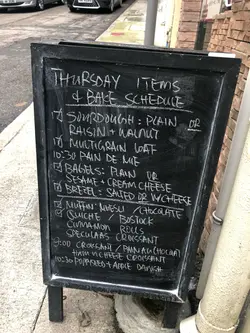 THURSDAY ITEMS
& BAKE SCHEDULE
SOURDOUGH: PLAIN OR
RAISIN + WALNUT
MULTIGRAIN LOAF
10:30 PAIN DE MIE
BAGELS: PLAIN OR
SESAME + CREAM CHEESE
BRETZEL: SALTED OR W/CHEESE
MUFFIN: / CHOCOLATE
QUICHE / BOSTOCK
CINNAMON ROLLS
SPECULAAS CROISSANT
9:00 CROISSANT / PAIN AU CHOCOLAT
HAM n' CHEESE CROISSANT
10:30 + APPLE DANISH